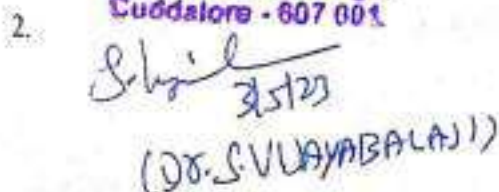 Cuddalore - 607 001
2.
3/5/23
(Dr. S. VIJAYABALAJI)